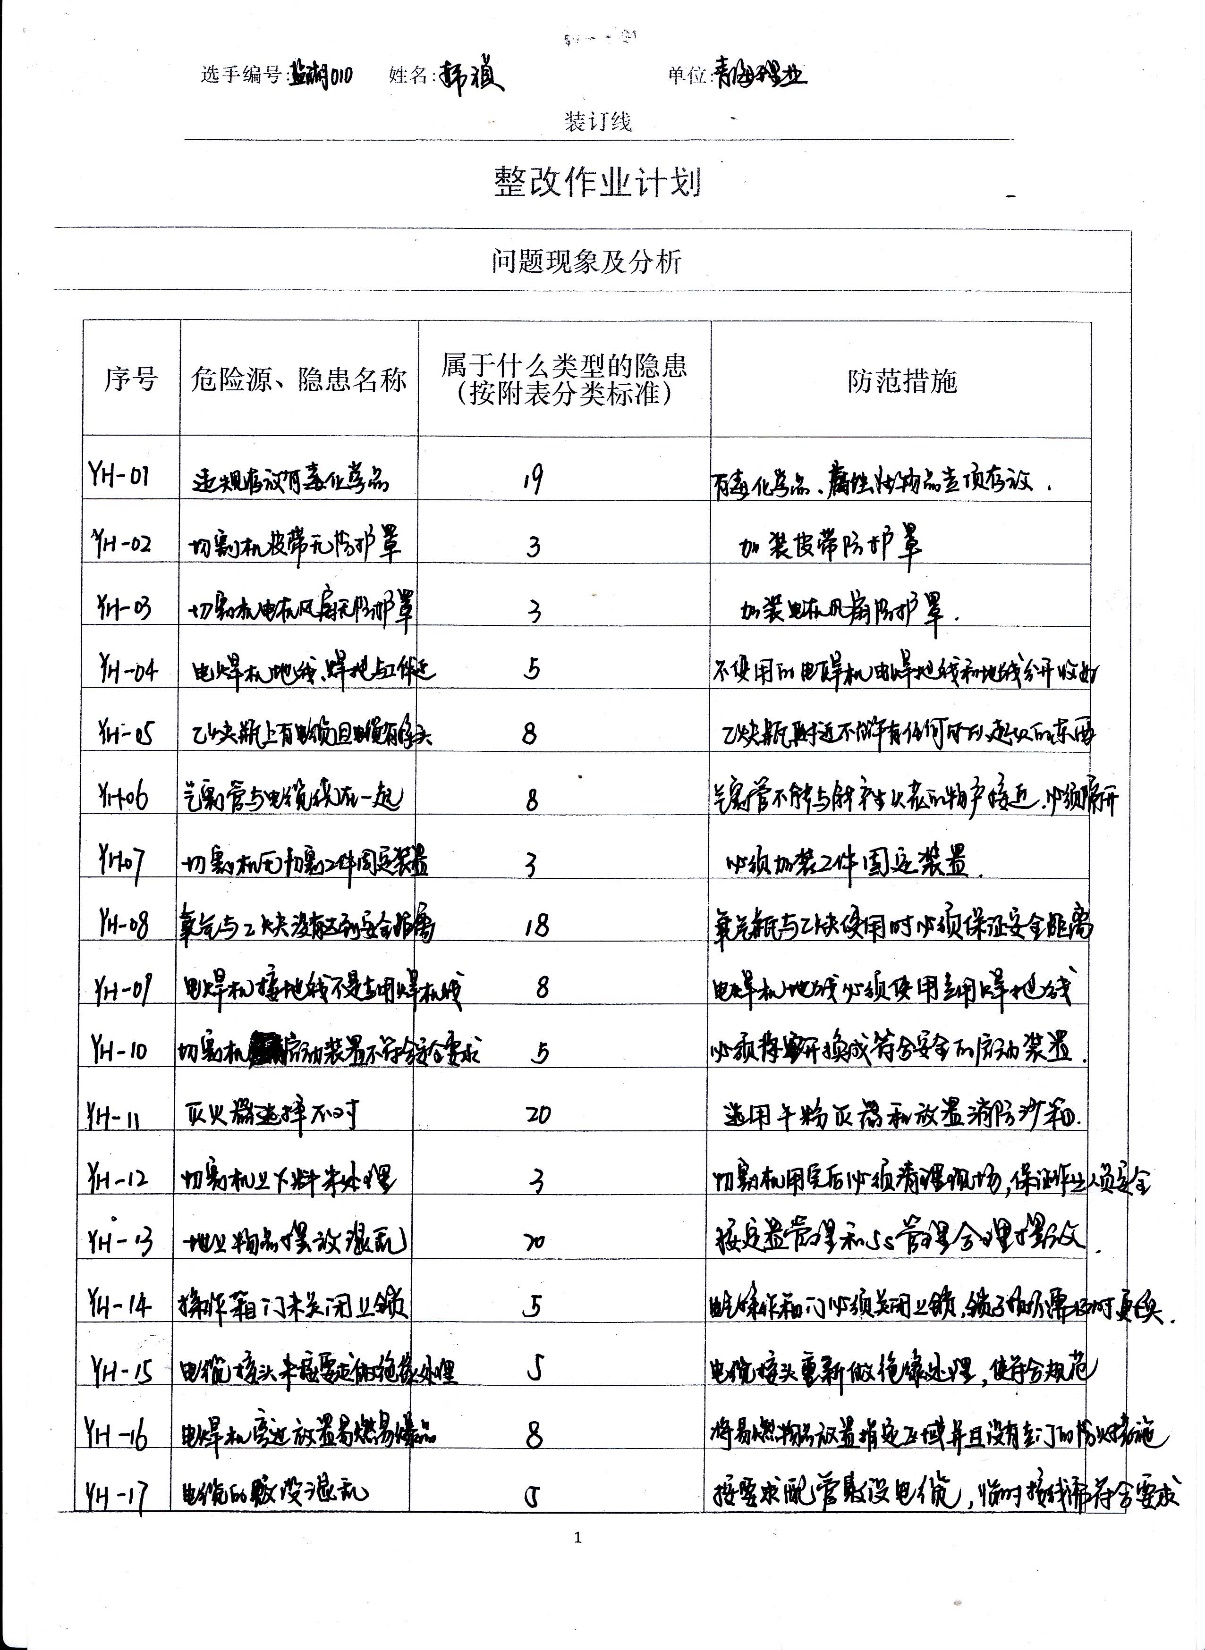 选手编号:盐湖010 姓名:韩 单位:青海盐业
装订线
整改作业计划
问题现象及分析
序号 危险源、隐患名称 属于什么类型的隐患 防范措施
（按附表分类标准）
YH-01 违规存放有毒化学品 19 有毒化学品、腐蚀性物品专项存放.
YH-02 切割机皮带无防护罩 3 加装皮带防护罩
YH-03 切割机电机风扇无防护罩 3 加装电机风扇防护罩.
YH-04 电焊机地线、焊把与工件连 5 不使用的电焊机电焊把线和地线分开收好
YH-05 乙炔瓶上有电缆且电缆有接头 8 乙炔瓶附近不能有任何可引起火的东西
YH-06 气割管与电缆线在一起 8 气割管不能与能产生火花的物户接近.必须隔开
YH-07 切割机无切割工件固定装置 3 必须加装工件固定装置.
YH-08 氧气与乙炔没有达到安全距离 18 氧气瓶与乙炔使用时必须保证安全距离
YH-09 电焊机接地线不是专用焊机线 8 电焊机地线必须使用专用焊把线
YH-10 切割机启动装置不符合安全要求 5 必须将开换成符合安全的启动装置.
YH-11 灭火器选择不对 20 选用干粉灭器和放置消防沙箱.
YH-12 切割机上下料未处理 3 切割机用完后必须清理现场,保证作业人员安全
YH-13 地上物品摆放混乱 20 按定置管理和5S管理合理摆放.
YH-14 操作箱门未关闭上锁 5 电气操作箱门必须关闭上锁,锁子损坏需及时更换.
YH-15 电缆接头未按要求做绝缘处理 5 电缆接头重新做绝缘处理,使符合规范
YH-16 电焊机旁边放置易燃易爆品 8 将易燃物品放置指定区域并且设有专门的防火措施
YH-17 电缆的敷设混乱 5 按要求配管敷设电缆,临时接线需符合要求
1